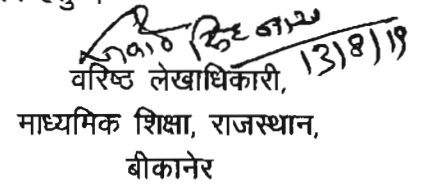 13/8/19
वरिष्ठ लेखाधिकारी,
माध्यमिक शिक्षा, राजस्थान,
बीकानेर